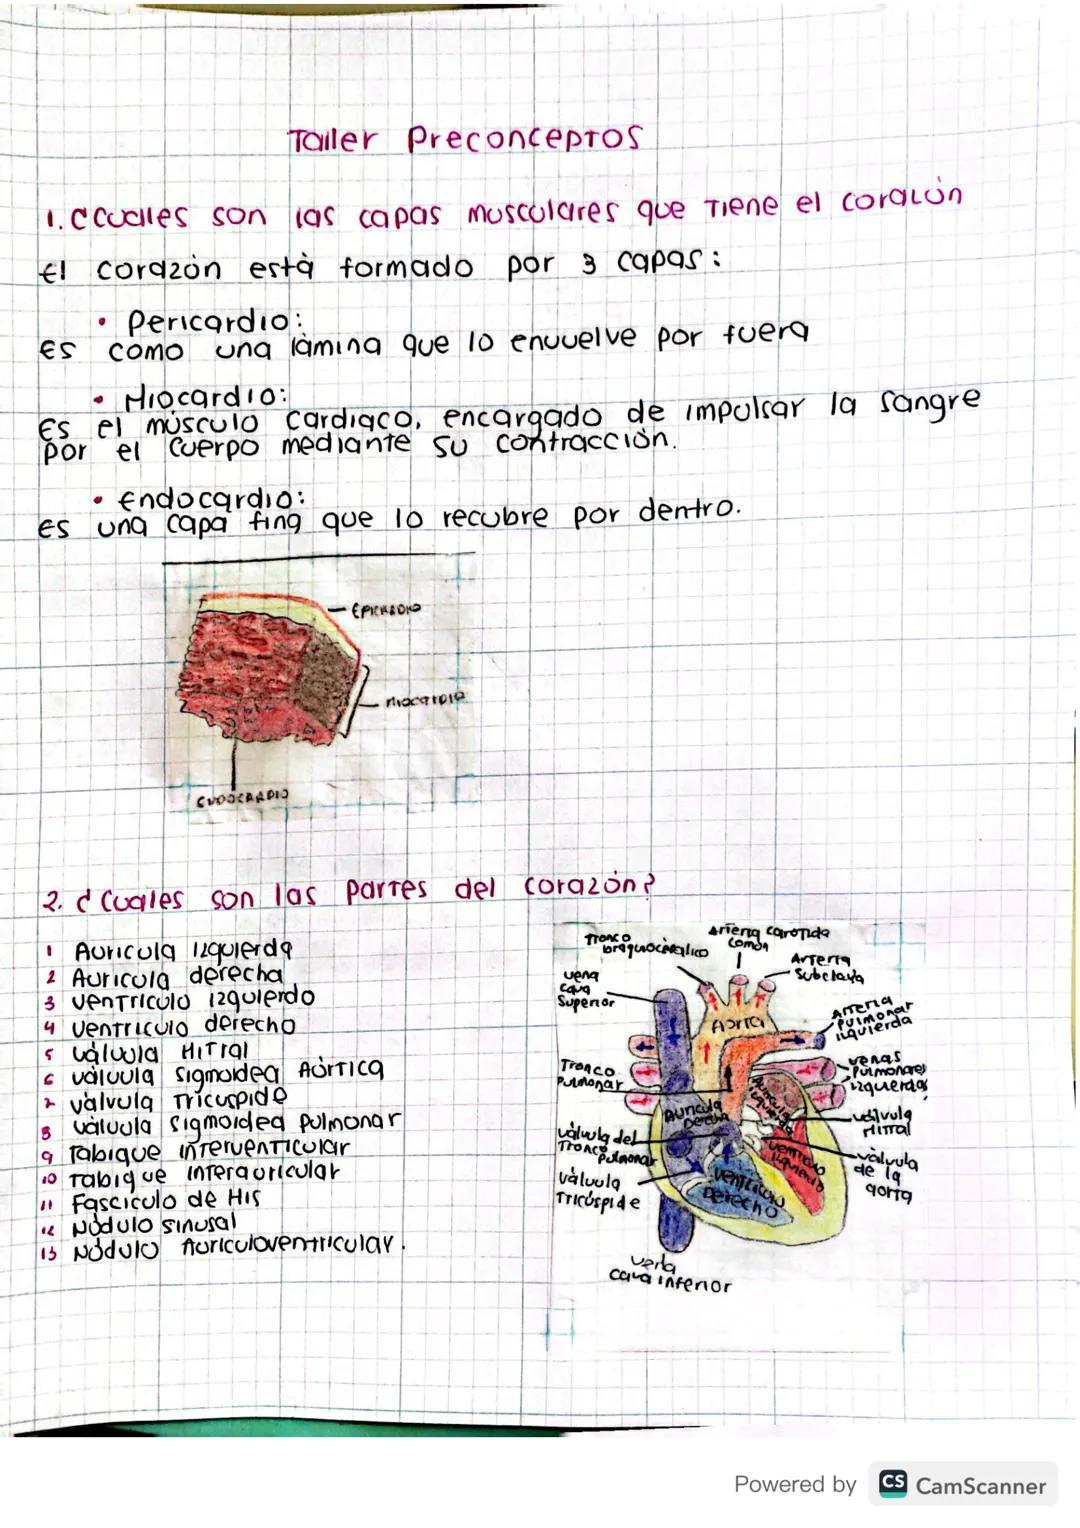 Taller Preconceptos
1. ¿Cuales son las capas musculares que Tiene el corazón
El corazón está formado por 3 capas:
• Pericardio:
Es como una lámina que lo envuelve por fuera
• Miocardio:
Es el músculo cardiaco, encargado de impulsar la sangre
por el cuerpo mediante su contracción.
• Endocardio:
Es una capa fina que lo recubre por dentro.
EPICARDIO
MIOCARDIO
ENDOCARDIO
2. ¿Cuales son las partes del corazón?
1 Auricula izquierda
2 Auricula derecha
3 ventriculo izquierdo
4 ventriculo derecho
5 válvula Mitral
6 válvula sigmoidea Aórtica
7 válvula Tricuspide
8 válvula sigmoidea pulmonar
9 Tabique interventricular
10 Tabique interauricular
11 Fasciculo de His
12 Nódulo sinusal
13 Nódulo Auriculoventricular.
Tronco
braquiocefalico
Arteria carotida
común
Arteria
Subclavia
vena
cava
superior
Aorta
Arteria
pulmonar
izquierda
Tronco
pulmonar
venas
pulmonares
izquierdas
Auricula
Derecha
Auricula
izquierda
válvula
Mitral
válvula del
Tronco
pulmonar
ventriculo
izquierdo
válvula
de la
aorta
válvula
Tricúspide
ventriculo
Derecho
vena
cava inferior
Powered by CS CamScanner